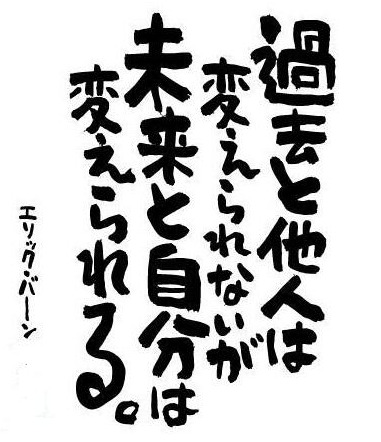 過去と他人は
変えられないが
未来と自分は
変えられる。
エリック・バーン